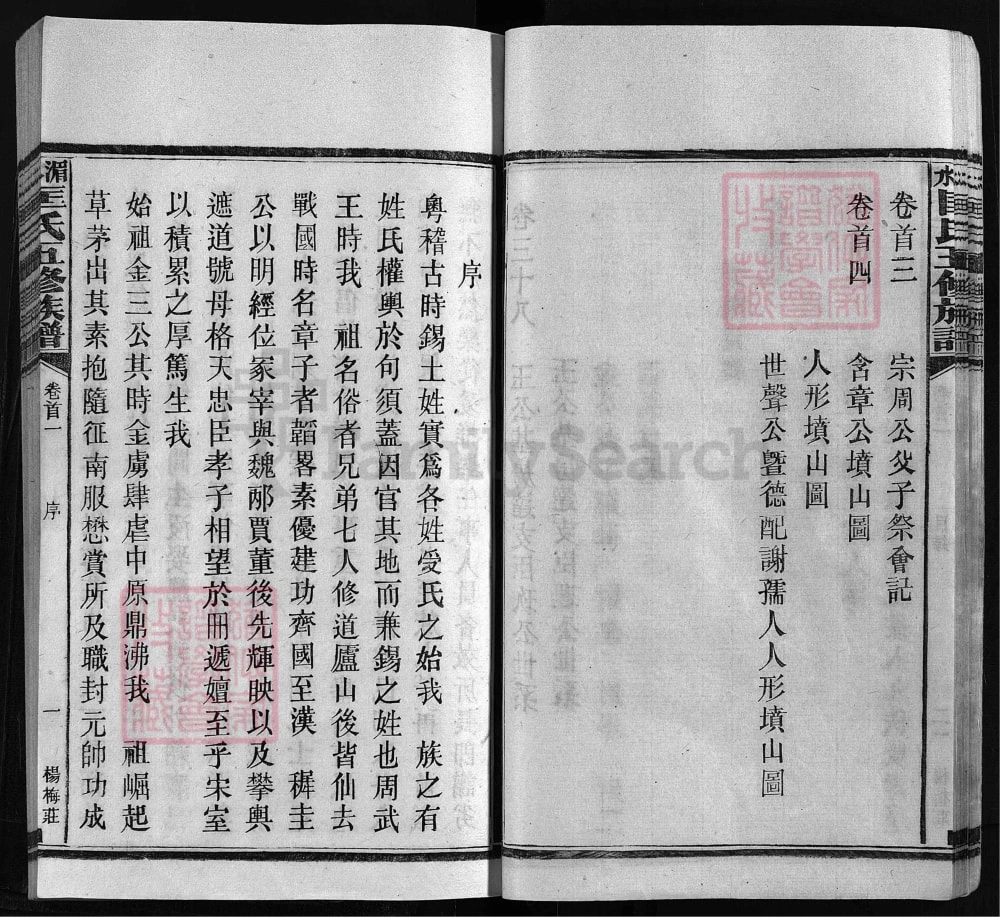 卷首三
宗周公父子祭會記
卷首四
含章公墳山圖
人形墳山圖
世聲公暨德配謝孺人人形墳山圖
序
粵稽古時錫土姓實爲各姓受氏之始我 族之有
姓氏權輿於句須蓋因官其地而兼錫之姓也周武
王時我 祖名俗者兄弟七人修道廬山後皆仙去
戰國時名章子者韜畧素優建功齊國至漢 穉圭
公以明經位冢宰與魏邴賈董後先輝映以及攀輿
遮道號母格天忠臣孝子相望於冊遞嬗至乎宋室
以積累之厚篤生我
始祖金三公其時金虜肆虐中原鼎沸我 祖崛起
草茅出其素抱隨征南服懋賞所及職封元帥功成
湄 匡氏五修族譜
卷首一
序
一
楊梅莊
FamilySearch